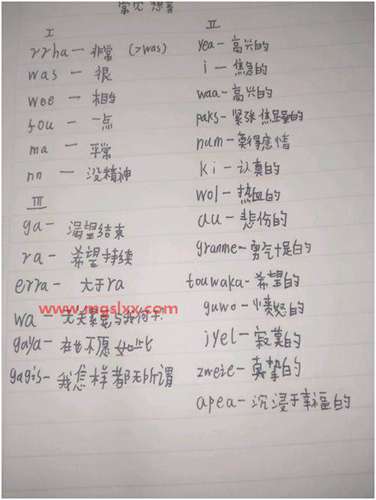 常见
I
rrha — 非常 (>was)
was — 很
wee — 相当
fou — 一点
ma — 平常
nn — 没精神
III
ga — 渴望结束
ra — 希望持续
erra — 大于ra
www.mgslxx.com
wa —
gaya — 在也不愿如此
gagis — 我怎样都无所谓
II
yea — 高兴的
i — 焦急的
waa — 高兴的
paks — 紧张焦虑的
num — 莫得感情
ki — 认真的
wol — 热血的
au — 悲伤的
granme — 勇气十足的
touwaka — 希望的
guwo —
jyel — 寂寞的
zweie — 真挚的
apea — 沉浸于幸福的